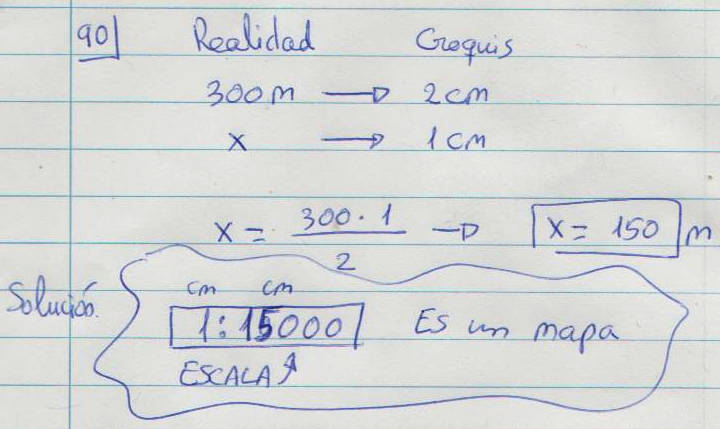 90 Realidad Croquis
300 m → 2 cm
x → 1 cm
x = 300 · 1 / 2 → x = 150 m
Solución. cm cm
1 : 15000 Es un mapa
ESCALA ↑